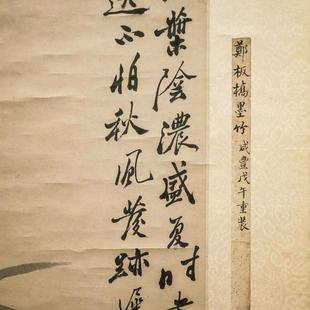 鄭板橋墨竹 咸豐戊午重裝
葉陰濃盛夏時
不怕秋風發跡